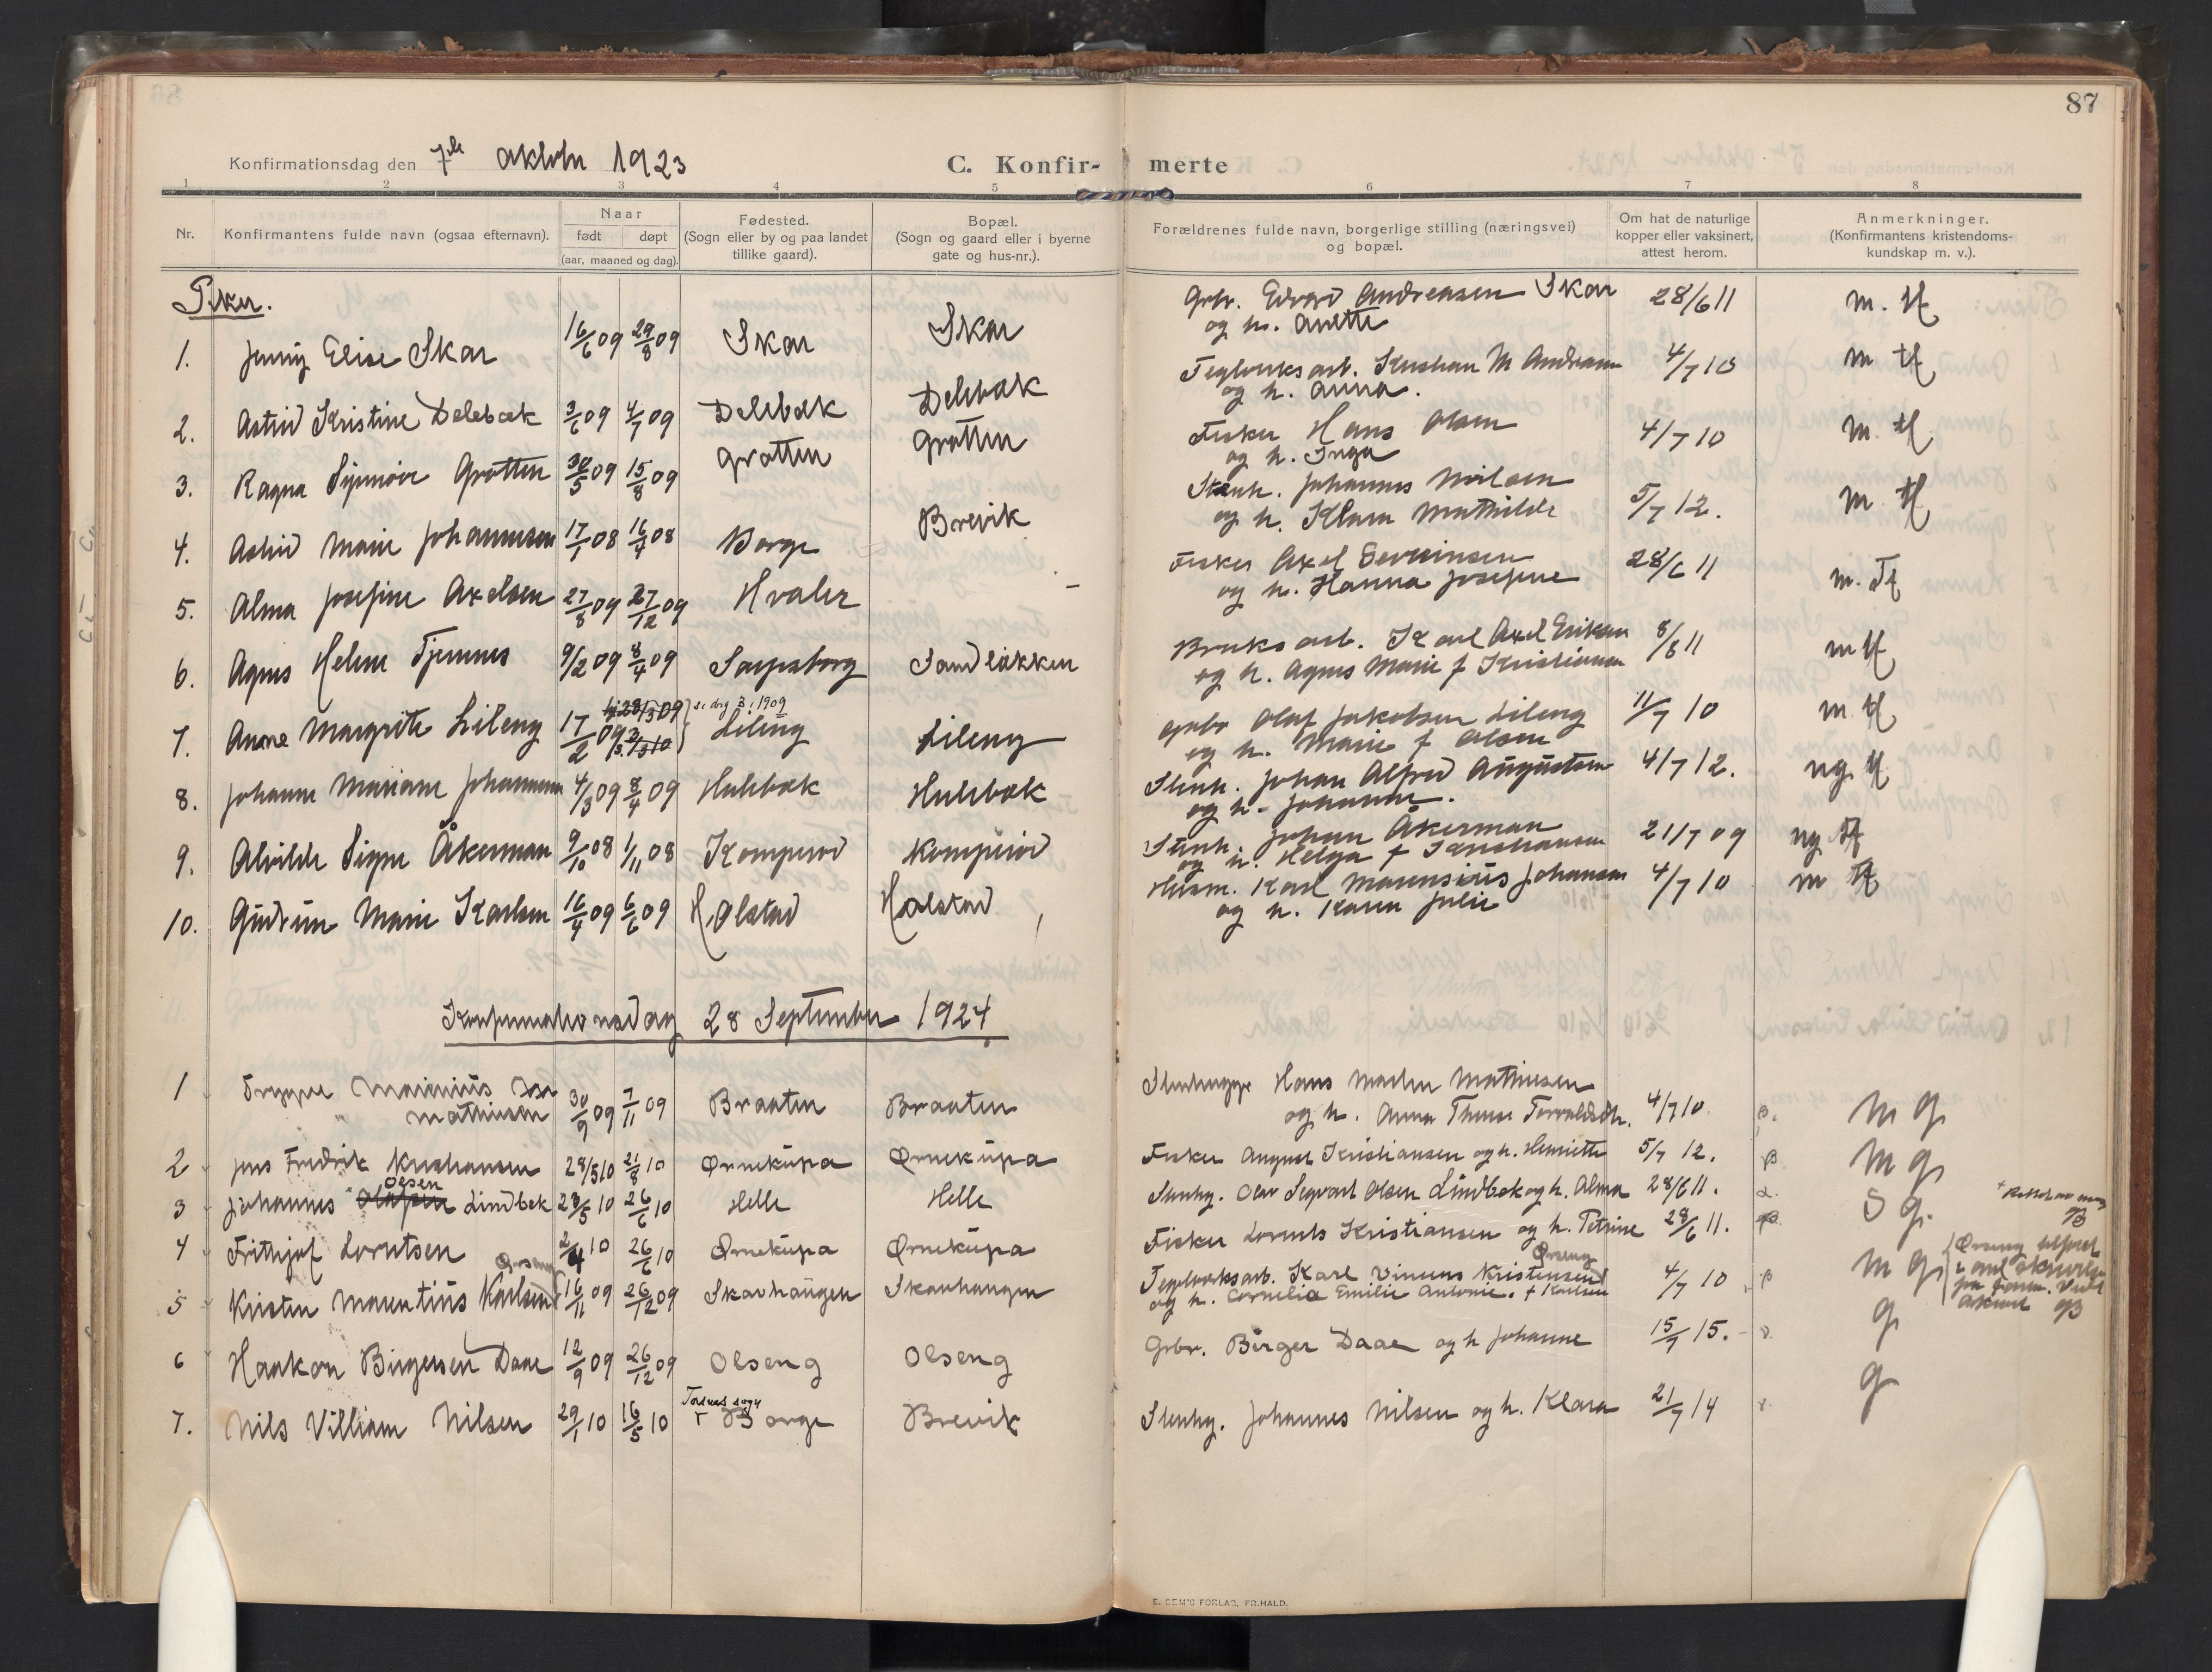 87
Konfirmationsdag den 7de oktober 1923
C. Konfir-merte
1 2 3 4 5 6 7 8
Nr. Konfirmantens fulde navn (ogsaa efternavn). Naar født døpt (aar, maaned og dag). Fødested. (Sogn eller by og paa landet tillike gaard). Bopæl. (Sogn og gaard eller i byerne gate og hus-nr.). Forældrenes fulde navn, borgerlige stilling (næringsvei) og bopæl. Om hat de naturlige kopper eller vaksinert, attest herom. Anmerkninger. (Konfirmantens kristendoms-kundskap m. v.).
Piker.
1. Jenny Elise Skar 16/6 09 29/8 09 Skar Skar Grbr. Edvard Andreasen Skar 28/6 11 m.
og h. Anette
2. Astrid Kristine Delebæk 3/6 09 4/7 09 Delebæk Delebæk Teglverksarb. Kristian M Andreasen 4/7 10 m
og h. Anna.
3. Ragna Synnøve Grotten 30/5 09 15/8 09 Grotten Grotten Fisker Hans Olsen 4/7 10 m.
og h. Inga
4. Astrid Marie Johannesen 17/1 08 16/4 08 Borge Brevik Stenh. Johannes Nilsen 5/7 12. m
og h. Klara Mathilde
5. Alma Josefine Axelsen 27/8 09 27/12 09 Hvaler - Fisker Axel Severinsen 28/6 11 m.
og h. Hanna Josefine
6. Agnes Helene Tjernnes 9/2 09 8/4 09 Sarpsborg Sandløkken Bruksarb. Karl Axel Eriksen 8/6 11 m
og h. Agnes Marie f Kristiansen
7. Anne Margrethe Lileng 17/2 09 28/3 09 3/3 10 se dog 3 i 1909 Lileng Lileng Grbr Olaf Jakobsen Lileng 11/7 10 m
og h. Marie f Olsen
8. Johanne Mariane Johannesen 4/3 09 8/4 09 Hulebæk Hulebæk Stenh. Johan Alfred Augustsen 4/7 12. ng
og h. Johanne.
9. Alvilde Signe Åkerman 9/10 08 1/11 08 Komperød Komperød Stenh. Johan Åkerman 21/7 09 ng
og h. Helga f Kristiansen
10. Gudrun Marie Karlsen 16/4 09 6/6 09 Holstad Holstad Husm. Karl Marensius Johansen 4/7 10 m
og h. Karen Julie
Konfirmationsdag 28 September 1924
1 Trygve Marinius
Mathiesen 30/9 09 7/11 09 Braaten Braaten Stenhugger Hans Martin Mathiesen
og h. Anna Therese Torvaldsdtr. 4/7 10. m g
2 Jens Fredrik Kristiansen 28/5 10 21/8 10 Ørnekupa Ørnekupa Fisker August Kristiansen og h. Henriette 5/7 12. m g
3 Johannes Olsen Lindbek 23/5 10 26/6 10 Helle Helle Stenhg. Olav Segvart Olsen Lindbek og h. Alma 28/6 11. s g.
4 Frithjof Lorntsen 2/4 10 26/6 10 Ørnekupa Ørnekupa Fisker Lorents Kristiansen og h. Petrine 28/6 11.
5 Kristen Marentius Karlsen Ørseng 16/11 09 26/12 09 Skarhaugen Skarhaugen Teglverksarb. Karl Vinums Kristensen Ørseng
og h. Cornelia Emilie Antonie. f Karlsen 4/7 10 m g
6 Haakon Birgersen Daae 12/9 09 26/12 09 Olseng Olseng Grbr. Birger Daae og h Johanne 15/7 15. g
7. Nils Villiam Nilsen 29/1 10 16/5 10 Torsnes sogn Borge Brevik Stenhg. Johannes Nilsen og h. Klara 21/7 14 g
E. SEM'S FORLAG, FR.HALD.